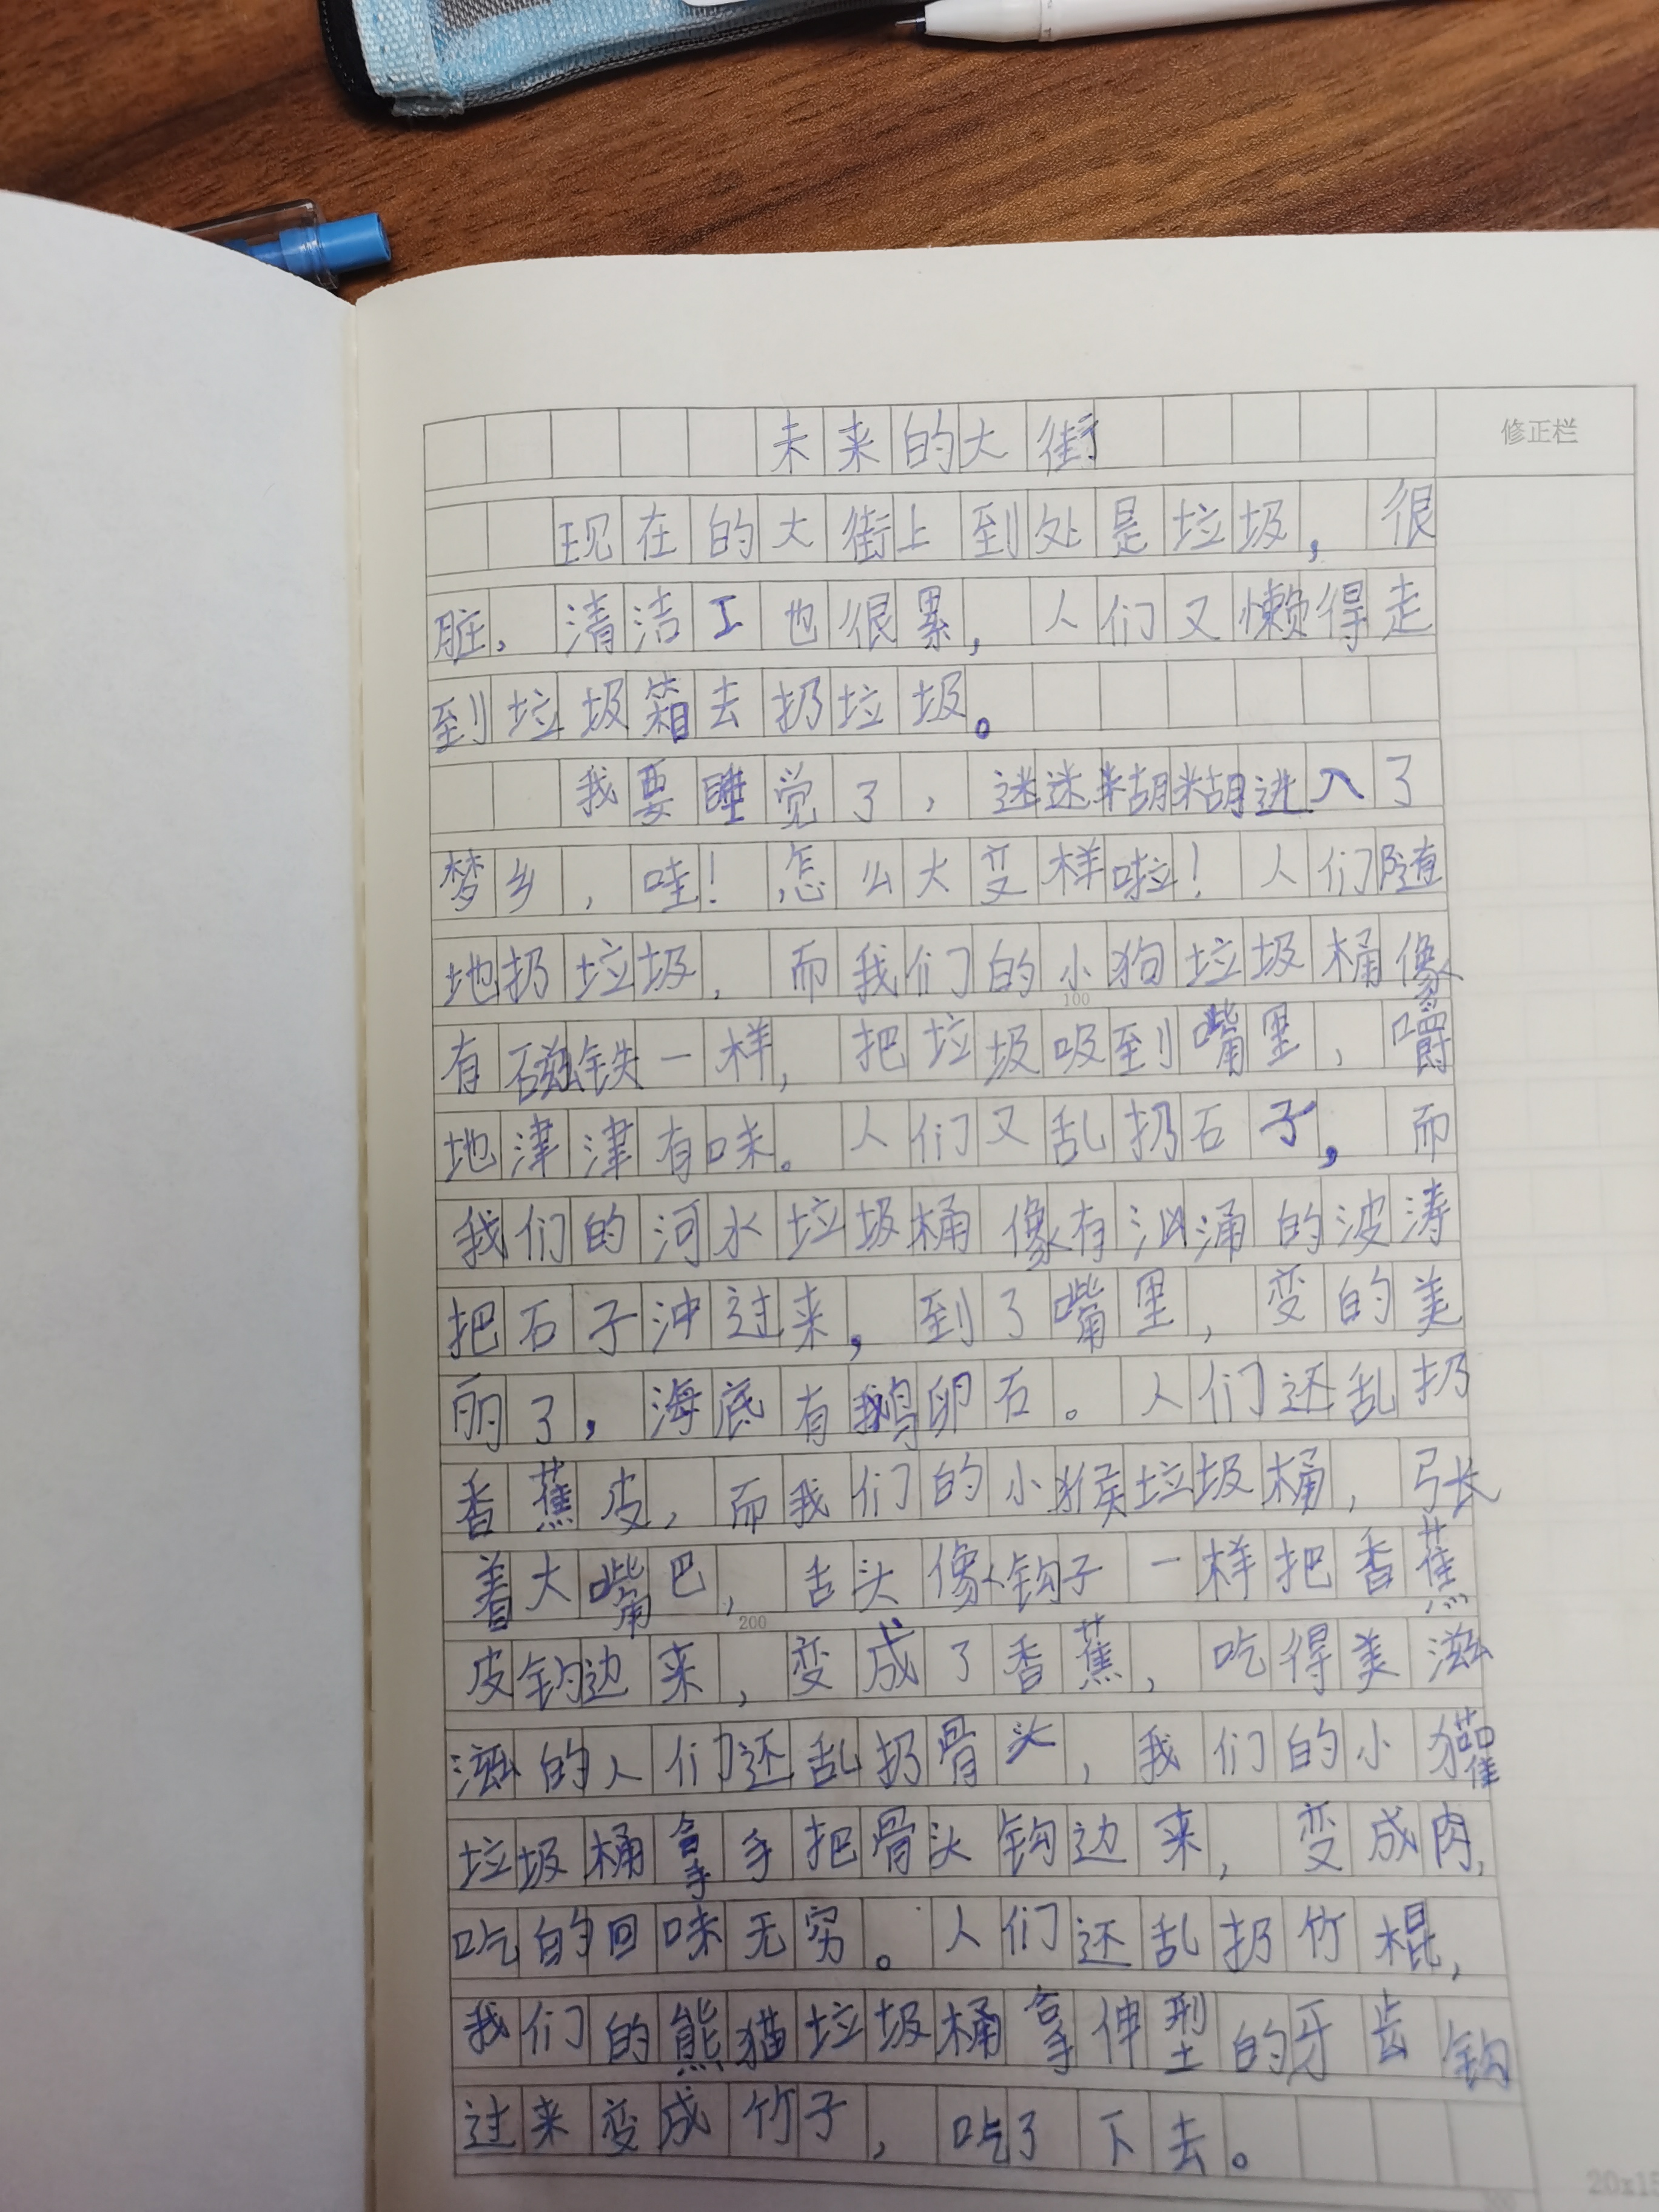 未来的大街
修正栏
现在的大街上到处是垃圾，很
脏，清洁工也很累，人们又懒得走
到垃圾箱去扔垃圾。
我要睡觉了，迷迷糊糊进入了
梦乡，哇！怎么大变样啦！人们随
地扔垃圾，而我们的小狗垃圾桶像
100
有磁铁一样，把垃圾吸到嘴里，嚼
地津津有味。人们又乱扔石子，而
我们的河水垃圾桶像有汹涌的波涛
把石子冲过来，到了嘴里，变的美
丽了，海底有鹅卵石。人们还乱扔
香蕉皮，而我们的小猴垃圾桶，张
着大嘴巴，舌头像钩子一样把香蕉
200
皮钩边来，变成了香蕉，吃得美滋
滋的人们还乱扔骨头，我们的小獾
垃圾桶拿手把骨头钩边来，变成肉，
吃的回味无穷。人们还乱扔竹棍，
我们的熊猫垃圾桶拿伸型的牙齿钩
过来变成竹子，吃了下去。